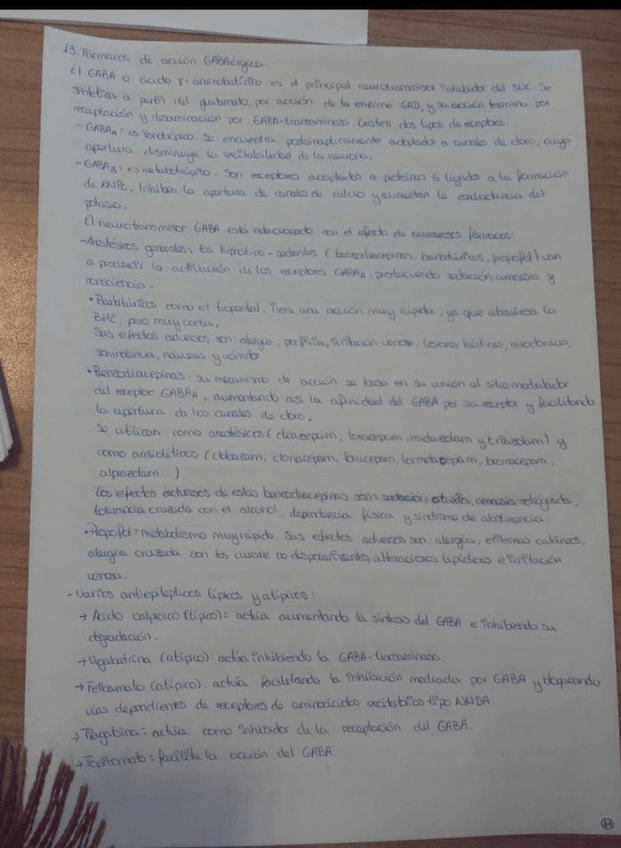 13. Fármacos de acción GABAérgica
El GABA o ácido γ-aminobutírico es el principal neurotransmisor inhibidor del SNC. Se
sintetiza a partir del glutamato, por acción de la enzima GAD, y su acción termina por
recaptación y desaminación por GABA-transaminasa. Existen dos tipos de receptores:
- GABAA: es ionotrópico. Se encuentra postsinápticamente acoplado a canales de cloro, cuya
apertura disminuye la excitabilidad de la neurona.
- GABAB: es metabotrópico. Son receptores acoplados a proteínas G ligados a la formación
de AMPc. Inhiben la apertura de canales de calcio y aumentan la conductancia del
potasio.
El neurotransmisor GABA está relacionado con el efecto de numerosos fármacos:
- Anestésicos generales: los hipnótico-sedantes (benzodiacepinas, barbitúricos, propofol) van
a producir la activación de los receptores GABAA, produciendo sedación, amnesia y
inconsciencia.
• Barbitúricos como el tiopental. Tiene una acción muy rápida, ya que atraviesa la
BHE, pero muy corta.
Sus efectos adversos son: alergia, porfiria, irritación venosa, mioclonías,
somnolencia, náuseas y vómitos
• Benzodiacepinas: su mecanismo de acción se basa en su unión al sitio modulador
del receptor GABAA, aumentando así la afinidad del GABA por su receptor y facilitando
la apertura de los canales de cloro.
Se utilizan como anestésicos (diacepam, loracepam, midazolam y) y
como ansiolíticos (clobazam, clonacepam, loracepam, bromacepam,
alprazolam...)
Los efectos adversos de estas benzodiacepinas son: sedación, ataxia, amnesia,
tolerancia cruzada con el alcohol, dependencia física y síndrome de abstinencia.
• Propofol: metabolismo muy rápido. Sus efectos adversos son: alergia, eritemas cutáneos,
alergia cruzada con los curare no despolarizantes, alteraciones lipídicas e irritación
venosa.
- Varios antiepilépticos típicos y atípicos:
→ Ácido valproico (típico): actúa aumentando la síntesis del GABA e inhibiendo su
degradación.
→ Vigabatrina (atípico): actúa inhibiendo la GABA-transaminasa.
→ Felbamato (atípico): actúa facilitando la inhibición mediada por GABA y bloqueando
vías dependiente de receptores de aminoácidos excitatorios tipo NMDA.
→ Tiagabina: actúa como inhibidor de la recaptación del GABA.
→ Topiramato: facilita la acción del GABA.